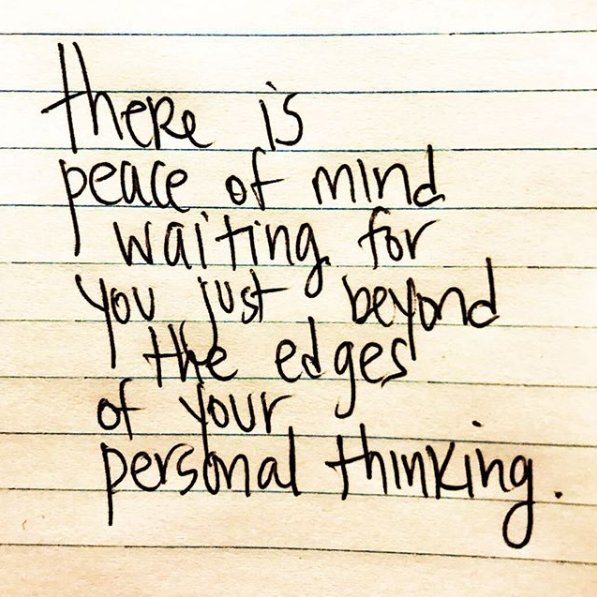 there is
peace of mind
waiting for
you just beyond
the edges
of your
personal thinking.